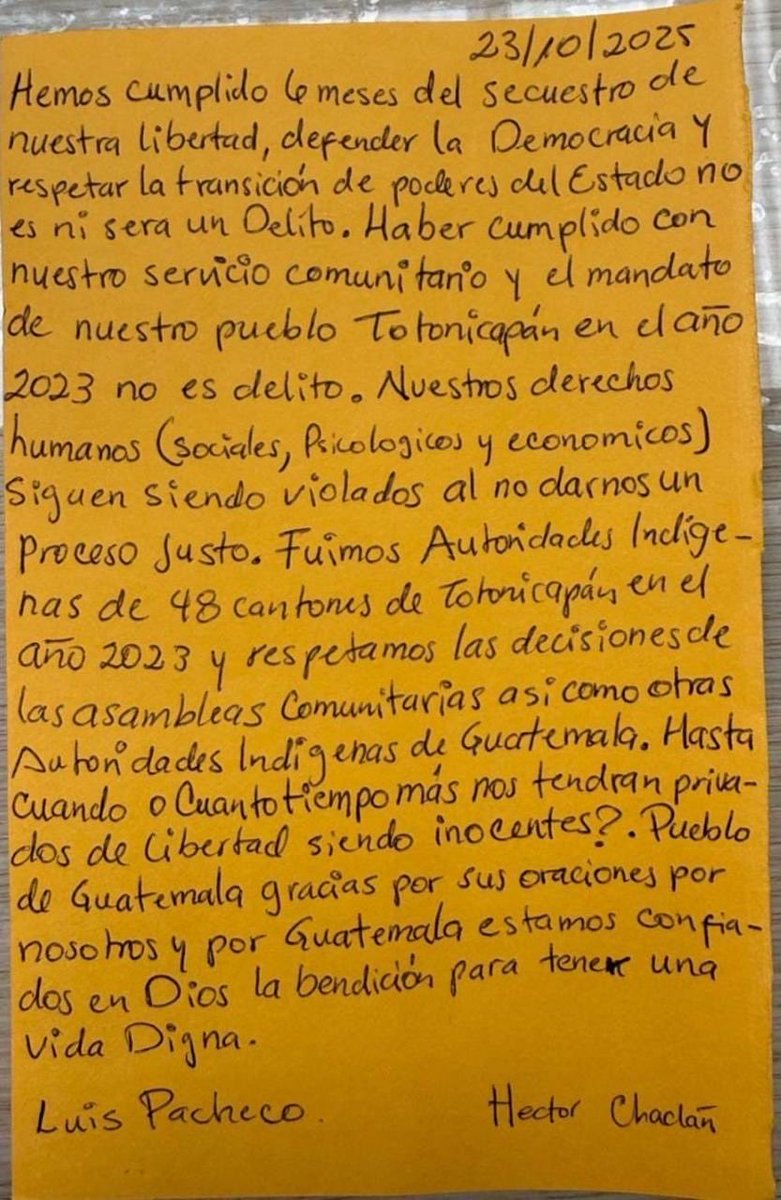 23/10/2025
Hemos cumplido 6 meses del secuestro de
nuestra libertad, defender la Democracia y
respetar la transición de poderes del Estado no
es ni sera un Delito. Haber cumplido con
nuestro servicio comunitario y el mandato
de nuestro pueblo Totonicapán en el año
2023 no es delito. Nuestros derechos
humanos (sociales, Psicologicos y economicos)
Siguen siendo violados al no darnos un
Proceso Justo. Fuimos Autoridades Indige-
nas de 48 cantones de Totonicapán en el
año 2023 y respetamos las decisiones de
las asambleas Comunitarias asi como otras
Autoridades Indígenas de Guatemala. Hasta
cuando o Cuanto tiempo más nos tendran priva-
dos de Libertad siendo inocentes?. Pueblo
de Guatemala gracias por sus oraciones por
nosotros y por Guatemala estamos confia-
dos en Dios la bendición para tener una
vida Digna.
Luis Pacheco. Hector Chaclañ